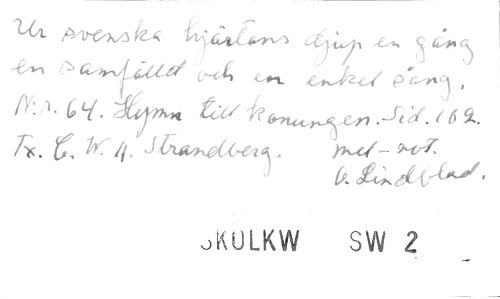 Ur svenska hjärtans djup en gång
en samfälld och en enkel sång.
N:r. 64. Hymn till konungen. Sid. 162.
Tx. C. W. A. Strandberg. mel-not.
O. Lindblad.
SKOLKW SW 2